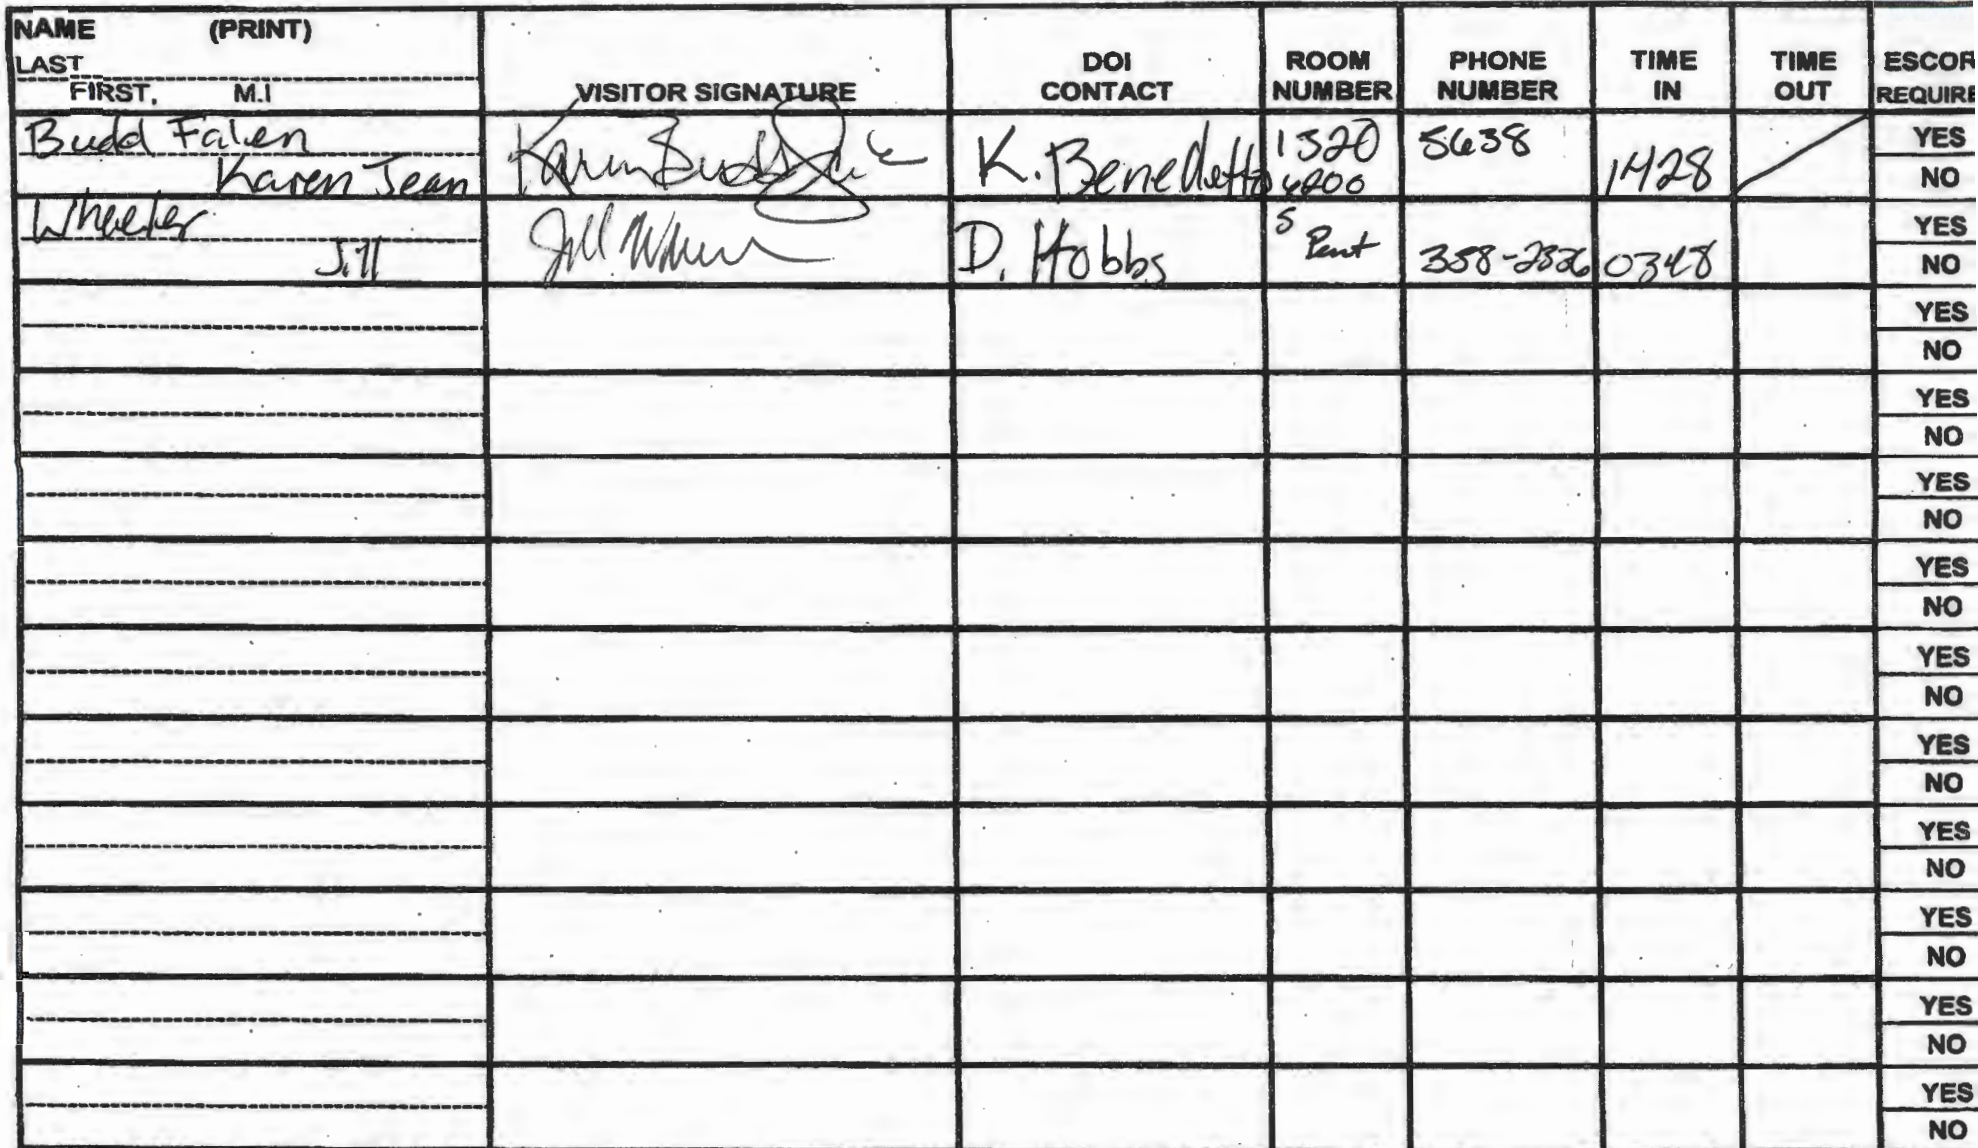 NAME (PRINT)
LAST
FIRST, M.I
VISITOR SIGNATURE
DOI
CONTACT
ROOM
NUMBER
PHONE
NUMBER
TIME
IN
TIME
OUT
ESCOR
REQUIRE
Budd Falen
Karen Jean
Karen Budd Falen
K. Benedetto
1320
6200
5638
1428
YES
NO
Wheeler
Jill
Jill Wheeler
D. Hobbs
S
Pent
0348
YES
NO
YES
NO
YES
NO
YES
NO
YES
NO
YES
NO
YES
NO
YES
NO
YES
NO
YES
NO
YES
NO